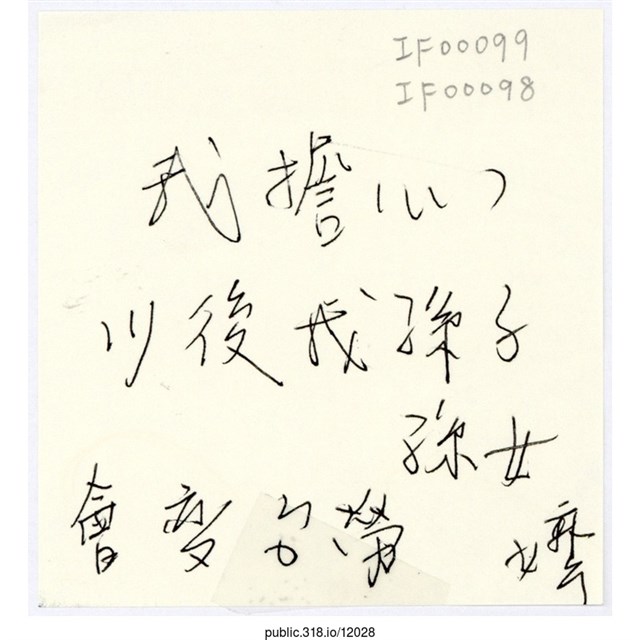 IF00099
IF00098
我擔心,
以後我孫子
孫女
會變台勞
public.318.io/12028